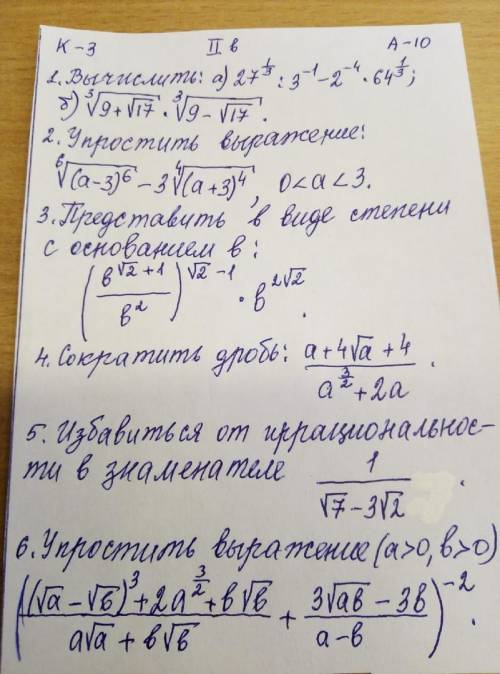 К-3 II в А-10
1. Вычислить: а) 27^{1/3} : 3^{-1} - 2^{-4} · 64^{1/3};
б) ∛(9+√17) · ∛(9-√17).
2. Упростить выражение:
⁶√((a-3)⁶) - 3 ⁴√((a+3)⁴), 0<a<3.
3. Представить в виде степени
с основанием в:
(в^{√2+1} / в²)^{√2-1} · в^{2√2}.
4. Сократить дробь: (a+4√a+4) / (a^{3/2}+2a).
5. Избавиться от иррациональнос-
ти в знаменателе 1 / (√7-3√2).
6. Упростить выражение (a>0, в>0)
(((√a-√в)³+2a^{3/2}+в√в) / (a√a+в√в) + (3√aв-3в) / (a-в))^{-2}.